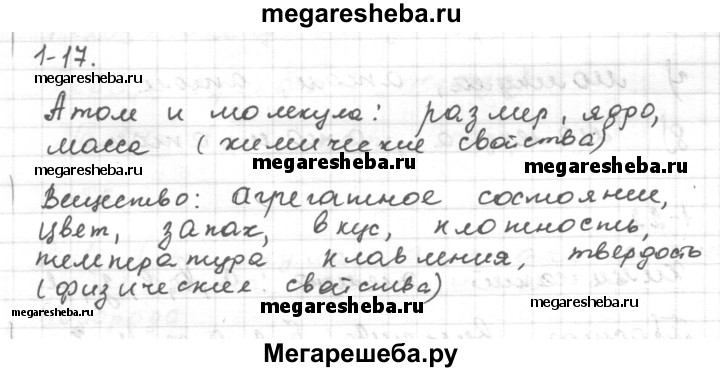 megaresheba.ru
1-17.
megaresheba.ru megaresheba.ru
Атом и молекула: размер, ядро,
масса (химические свойства)
megaresheba.ru megaresheba.ru megaresheba.ru
Вещество: агрегатное состояние,
цвет, запах, вкус, плотность,
температура плавления, твердость
(физические свойства)
megaresheba.ru megaresheba.ru megaresheba.ru
Мегарешеба.ру